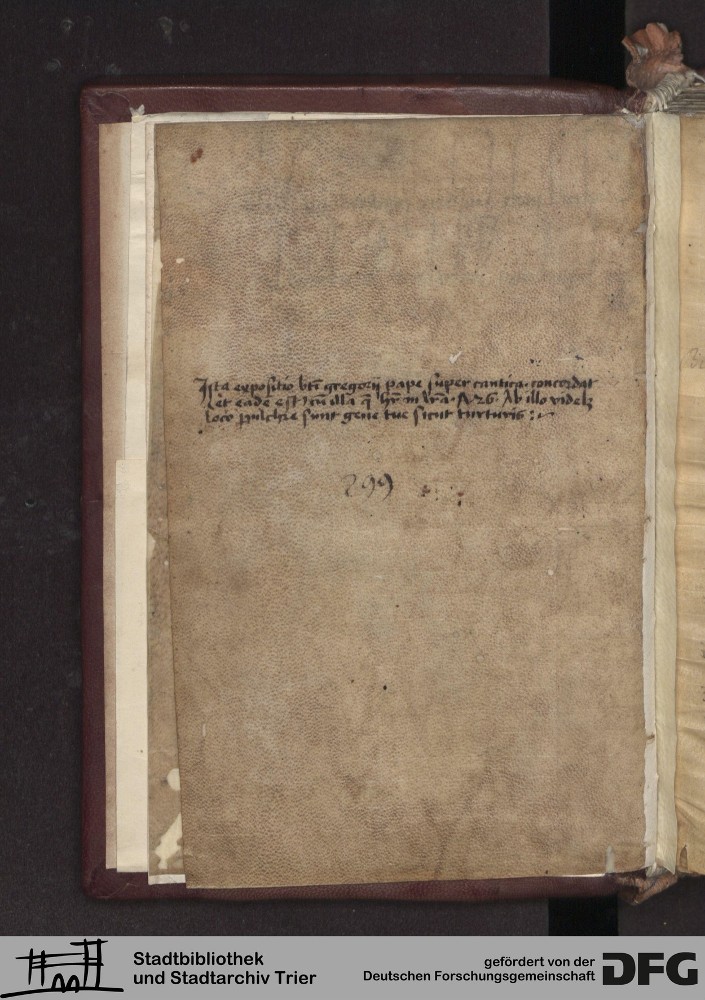 Ista expositio bti gregorij pape super cantica concordat
et eadē est cū illa q̄ hr̄ in lr̄a · Ab illo videlz
loco pulchre sunt gene tue sicut turturis :~
299
Stadtbibliothek
und Stadtarchiv Trier
gefördert von der
Deutschen Forschungsgemeinschaft
DFG